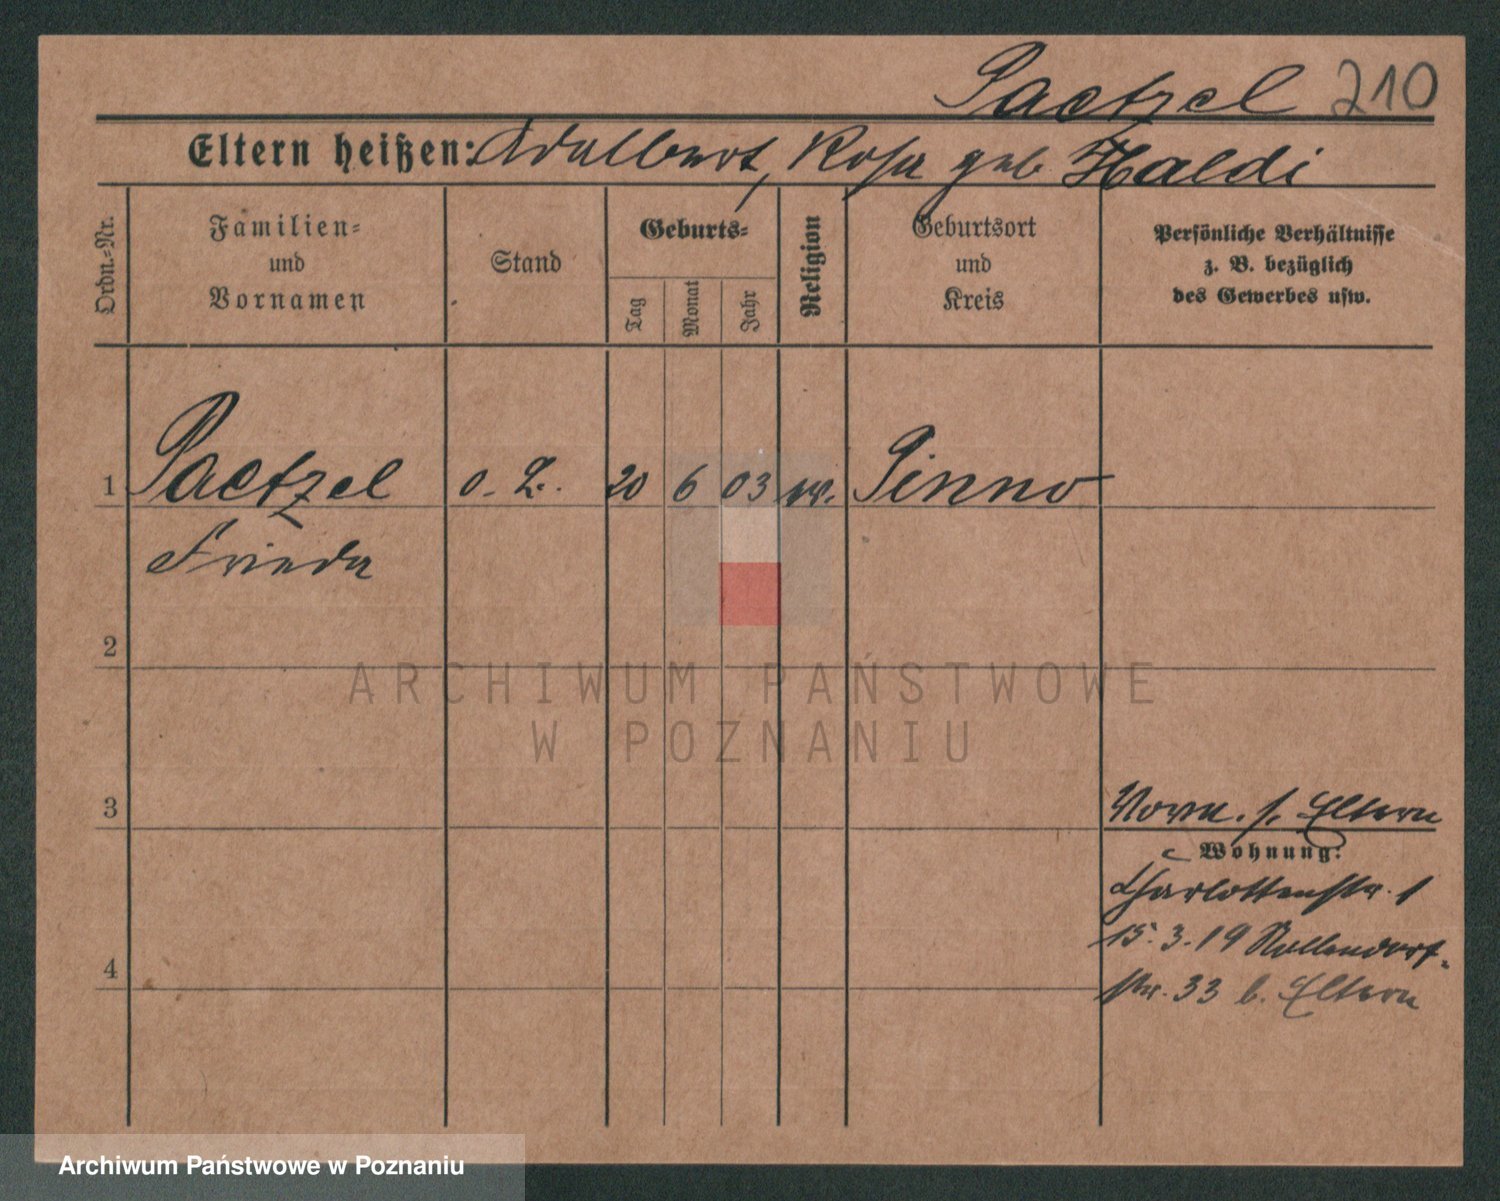 Paetzel 210
Eltern heißen: Adalbert, Rosa geb Haldi
Ordn.-Nr.
Familien-
und
Vornamen
Stand
Geburts-
Tag
Monat
Jahr
Religion
Geburtsort
und
Kreis
Persönliche Verhältnisse
z. B. bezüglich
des Gewerbes usw.
1 Paetzel 20 6 03 Pinno
Frieda
2
3
Eltern
Wohnung:
Charlottenstr. 1
4
15.3.19 Nollendorf-
str. 33 b. Eltern
ARCHIWUM PAŃSTWOWE
W POZNANIU
Archiwum Państwowe w Poznaniu